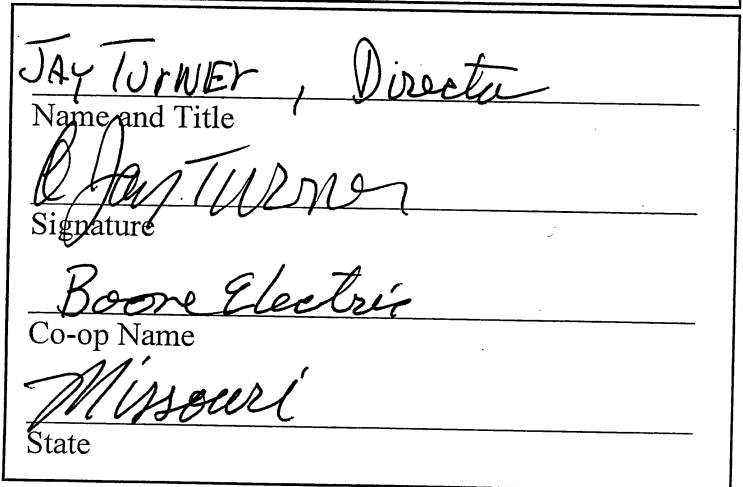 JAY TURNER, Director
Name and Title
C Jay Turner
Signature
Boone Electric
Co-op Name
Missouri
State